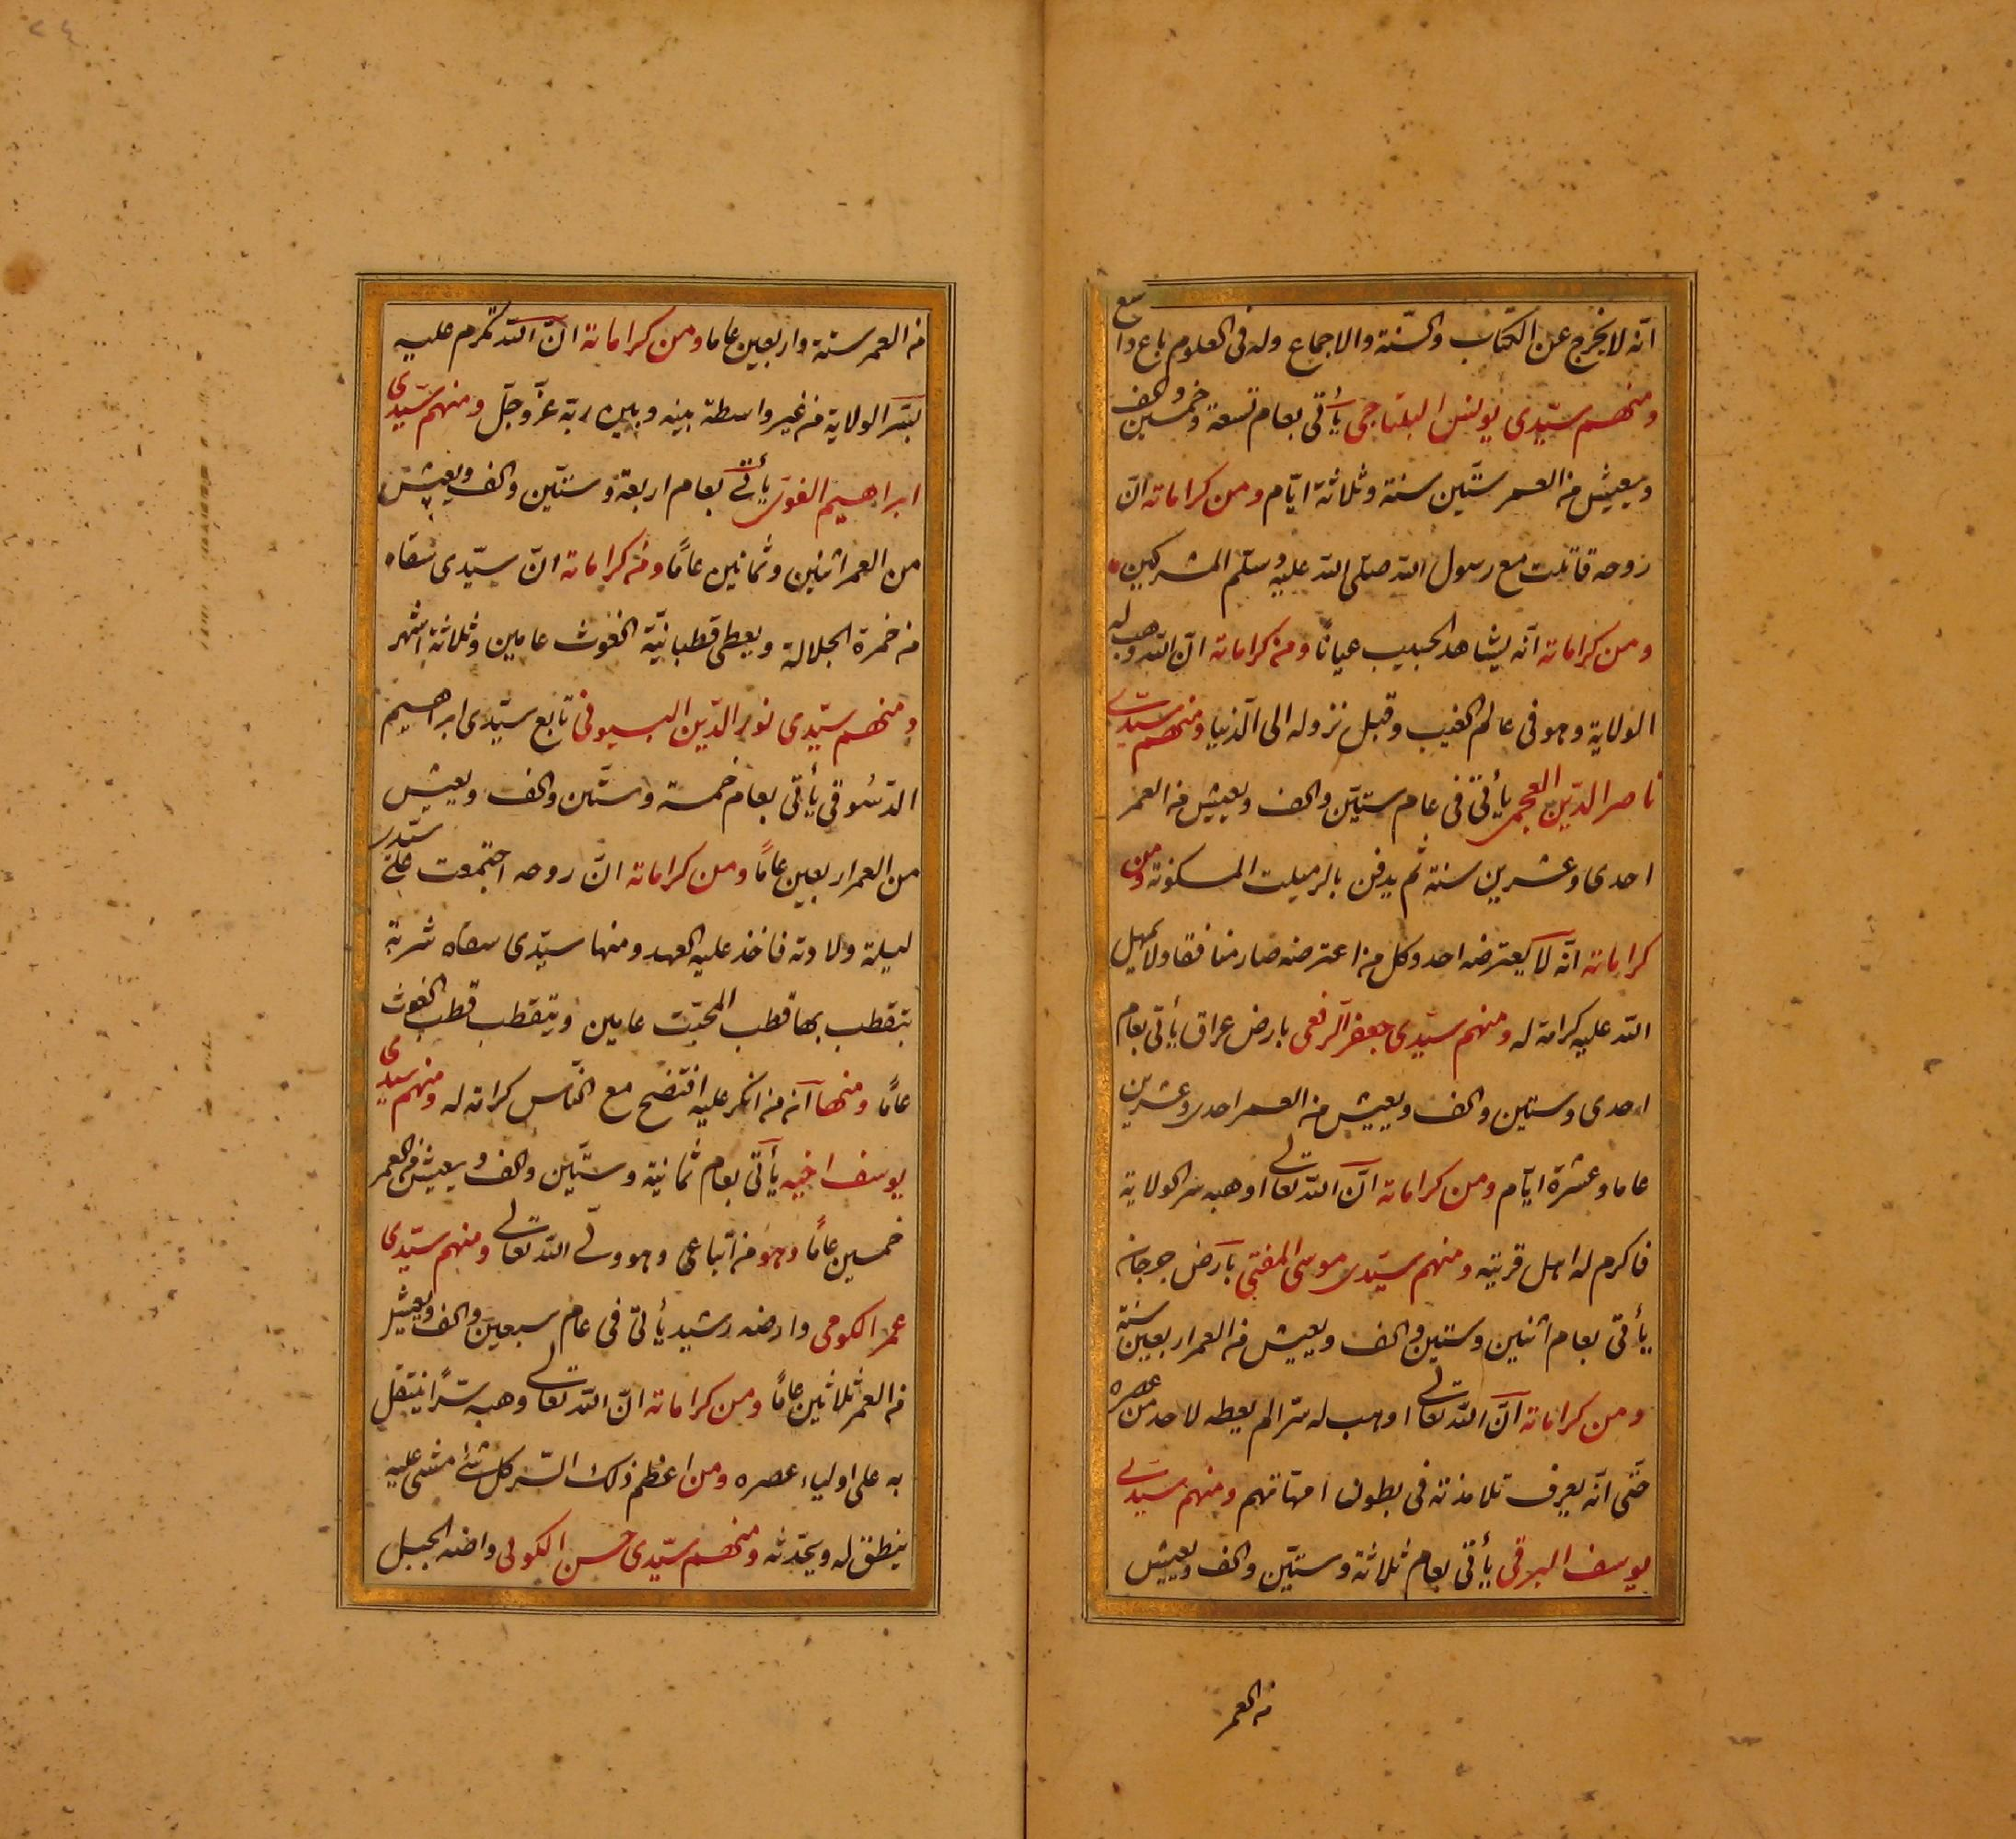 انّه لا يخرج عن الكتاب والسّنة والاجماع وله فى العلوم باع واسع
ومنهم سيّدى يونس البلتاجى يأتى بعام تسعة وخمسين والف
ويعيش من العمر ستّين سنة وثلاثة ايّام ومن كراماته انّ
روحه قاتلت مع رسول الله صلى الله عليه وسلّم المشركين
ومن كراماته انّه يشاهد الحبيب عيانًا ومن كراماته انّ الله وهب له
الولاية وهو فى عالم الغيب وقبل نزوله الى الدّنيا ومنهم سيّدى
ناصر الدّين العجمى يأتى فى عام ستّين والف ويعيش من العمر
احدى وعشرين سنة ثم يدفن بالرميلت المسكونة ومن
كراماته انّه لا يعترضه احد وكل من اعترضه صار منافقا ولا يمهل
الله عليه كرامة له ومنهم سيّدى جعفر الرفعى بارض عراق يأتى بعام
احدى وستين والف ويعيش من العمر احدى وعشرين
عاما وعشرة ايّام ومن كراماته انّ الله تعالى اوهبه سر الولاية
فاكرم له اهل قريته ومنهم سيّدى موسى المفتى بارض جرجان
يأتى بعام اثنين وستين والف ويعيش من العمر اربعين سنة
ومن كراماته انّ الله تعالى اوهب له سرّا لم يعطه لاحد من عصره
حتّى انّه يعرف تلامذته فى بطون امهاتهم ومنهم سيّدى
يوسف البرقى يأتى بعام ثلاثة وستّين والف ويعيش
من العمر
من العمر ستة واربعين عاما ومن كراماته انّ الله تكرم عليه
بسّر الولاية من غير واسطة بينه وبين ربّه عزّ وجلّ ومنهم سيّدى
ابراهيم الغوى يأتى بعام اربعة وستّين والف ويعيش
من العمر اثنين وثمانين عامًا ومن كراماته انّ سيّدى سقاه
من خمرة الجلالة ويعطى قطبانيّة الغوث عامين وثلاثة اشهر
ومنهم سيّدى نور الدّين البسيونى تابع سيّدى ابراهيم
الدّسُوقى يأتى بعام خمسة وستّين والف ويعيش
من العمر اربعين عامًا ومن كراماته انّ روحه اجتمعت على سيّدى
ليلة ولادته فاخذ عليه العهد ومنها سيّدى سقاه شربة
بتقطب بها قطب المحبّت عامين ويتقطب قطب الغوث
عامًا ومنها انّه من انكر عليه افتضح مع النّاس كرامة له ومنهم سيّدى
يوسف اخيه يأتى بعام ثمانية وستّين والف ويعيش من العمر
خمسين عامًا وهو من اتباعى وهو ولّى الله تعالى ومنهم سيّدى
عمر الكومى وارضه رشيد يأتى فى عام سبعين والف ويعيش
من العمر ثلاثين عامًا ومن كراماته انّ الله تعالى وهبه سرًّا ينتقل
به على اولياء عصره ومن اعظم ذلك السّر كل شئ مشى عليه
ينطق له ويحدّثه ومنهم سيّدى حسن الكولى واضه الجبل